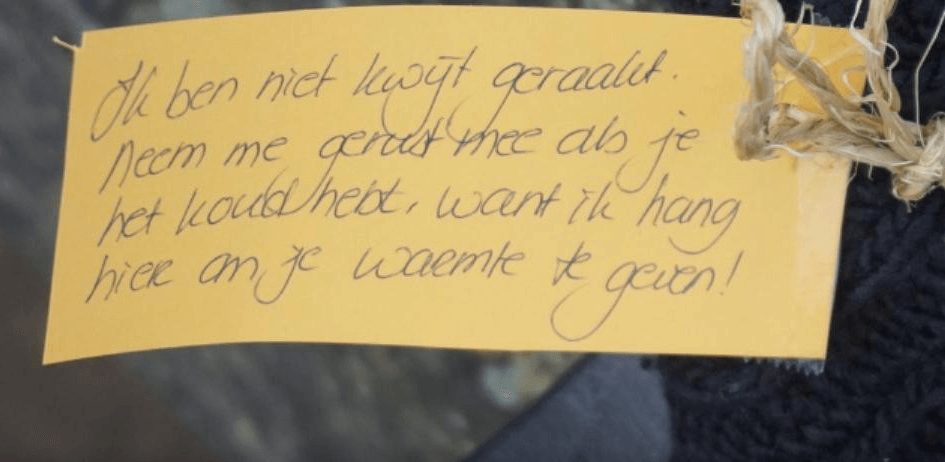 Ik ben niet kwijt geraakt.
Neem me gerust mee als je
het koud hebt, want ik hang
hier om je warmte te geven!